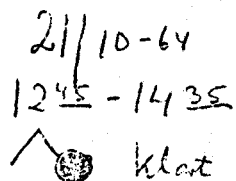 21/10-64
12 45 - 14 35
Klart